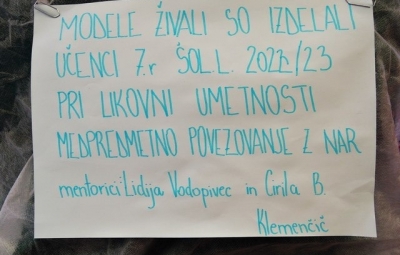 MODELE ŽIVALI SO IZDELALI
UČENCI 7.r ŠOL.L. 2022/23
PRI LIKOVNI UMETNOSTI
MEDPREDMETNO POVEZOVANJE Z NAR
mentorici Lidija Vodopivec in Cirila B.
Klemenčič